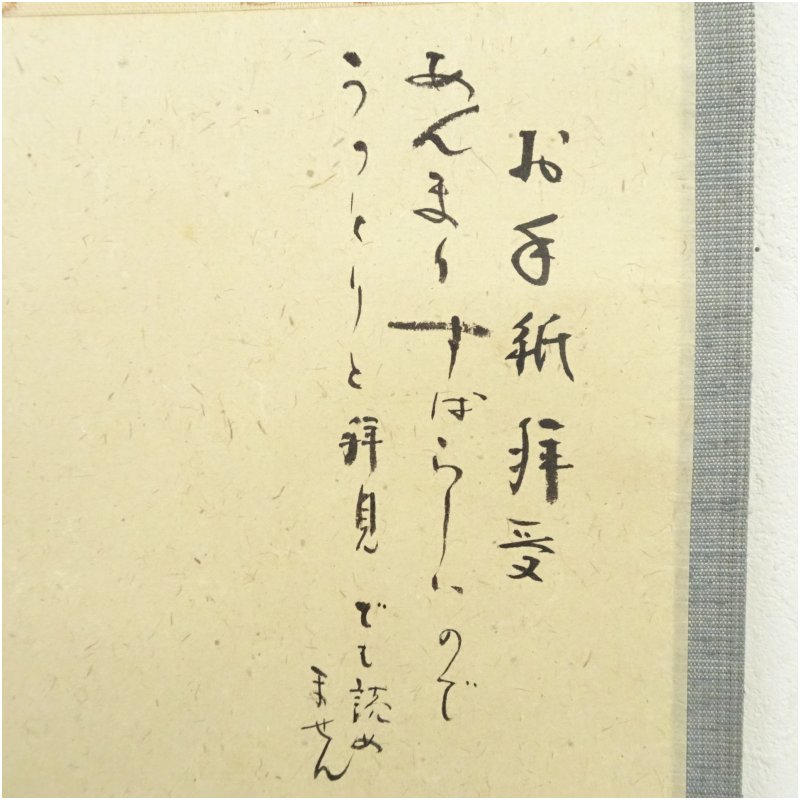 お手紙拝受
あんまりすばらしいので
うっとりと拝見でも読め
ません